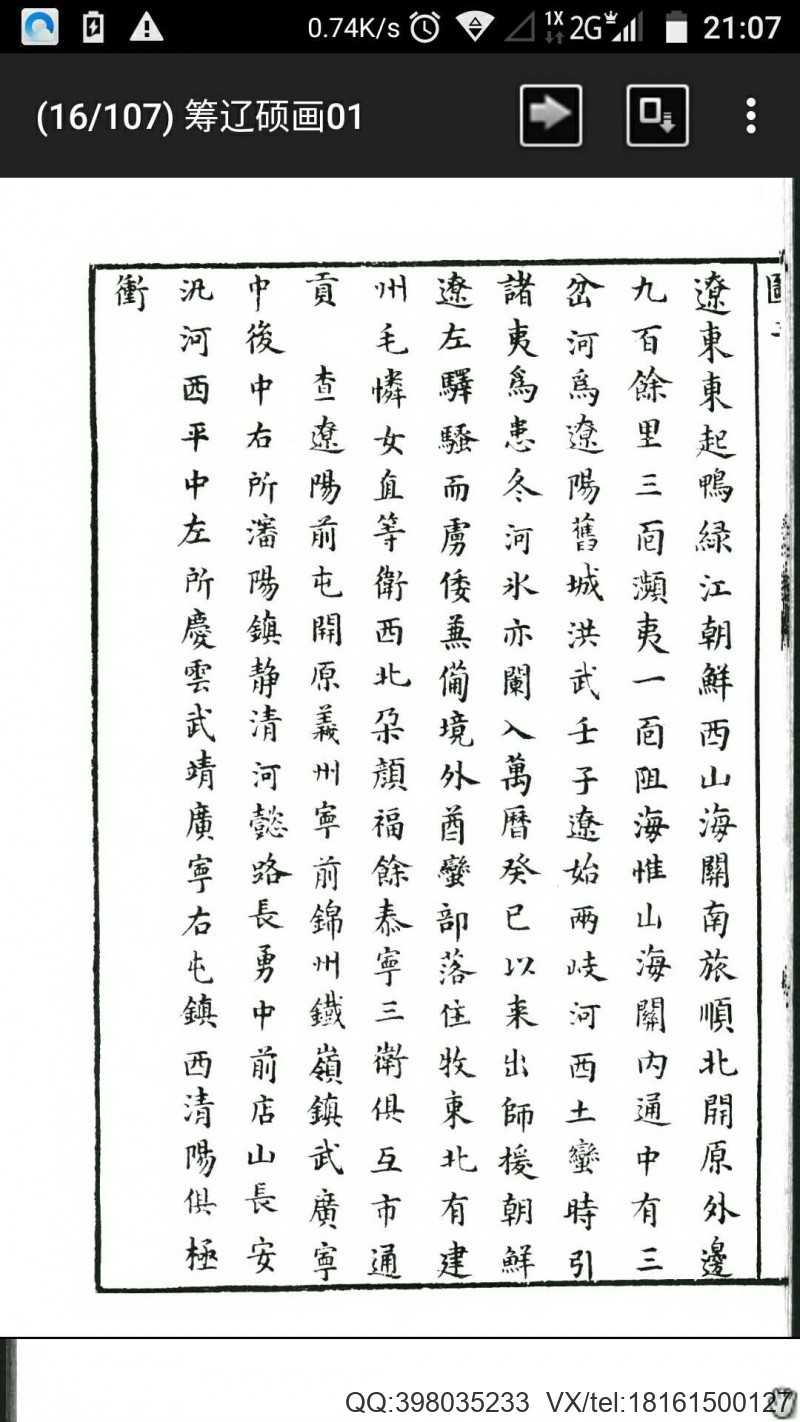 0.74K/s 1X 2G 21:07
(16/107) 筹辽硕画01
遼東東起鴨緑江朝鮮西山海關南旅順北開原外邊
九百餘里三面瀕夷一面阻海惟山海關內通中有三
岔河爲遼陽舊城洪武壬子遼始兩岐河西土蠻時引
諸夷爲患冬河氷亦闌入萬曆癸巳以来出師援朝鮮
遼左驛騷而虜倭兼備境外酋蠻部落住牧東北有建
州毛憐女直等衛西北朶顏福餘泰寧三衛俱互市通
貢 查遼陽前屯開原義州寧前錦州鐵嶺鎮武廣寧
中後中右所瀋陽鎮静清河懿路長勇中前店山長安
汎河西平中左所慶雲武靖廣寧右屯鎮西清陽俱極
衝
QQ:398035233 VX/tel:18161500127